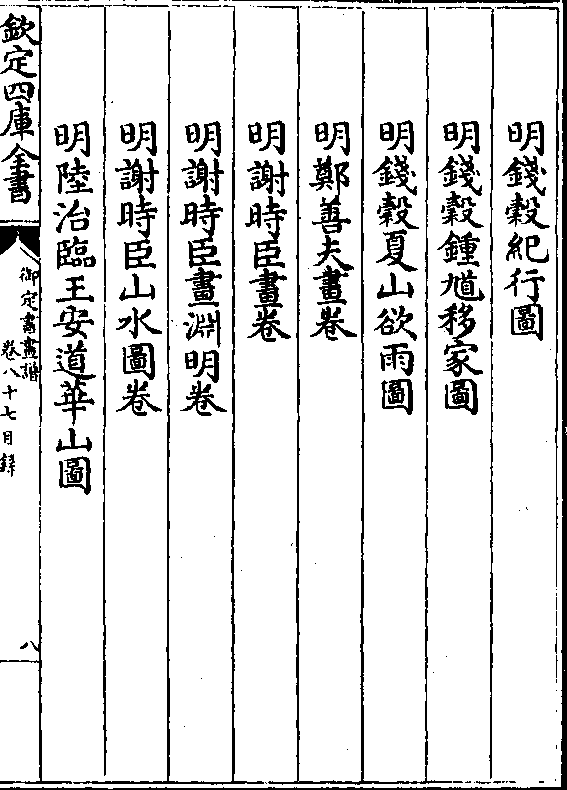 明錢穀紀行圖
明錢穀鍾馗移家圖
明錢穀夏山欲雨圖
明鄭善夫畫卷
明謝時臣畫卷
明謝時臣畫淵明卷
明謝時臣山水圖卷
明陸治臨王安道華山圖
欽定四庫全書
御定書畫譜
卷八十七目錄
八